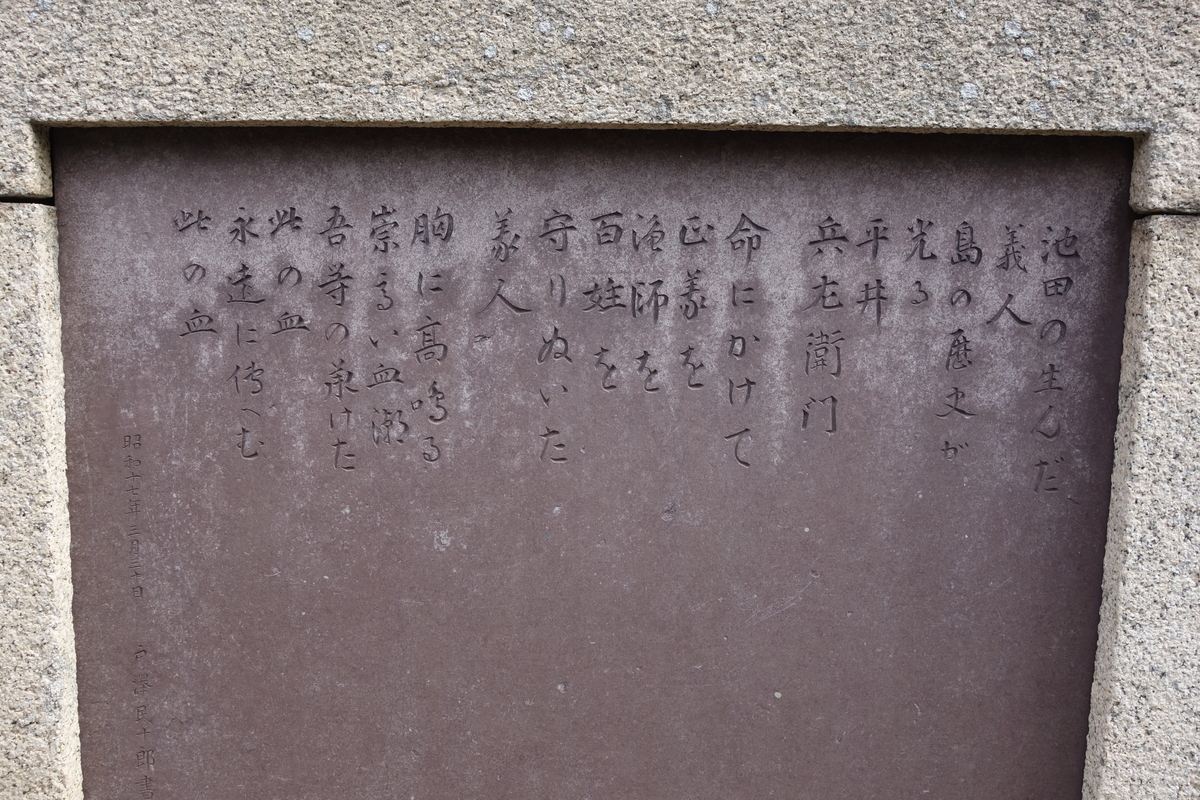 池田の生んだ、
義人
島の歴史が
光る
平井
兵左衛門
命にかけて
正義を
漁師を
百姓を
守りぬいた
義人。
胸に高鳴る
崇高い血潮
吾等の承けた
此の血
永遠に傳へむ
此の血
昭和十七年三月三十日 戸澤民十郎書